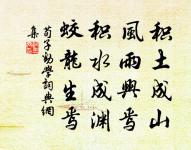 積土成山
風雨興焉
積水成淵
蛟龍生焉
荀子勸學詞典網
集